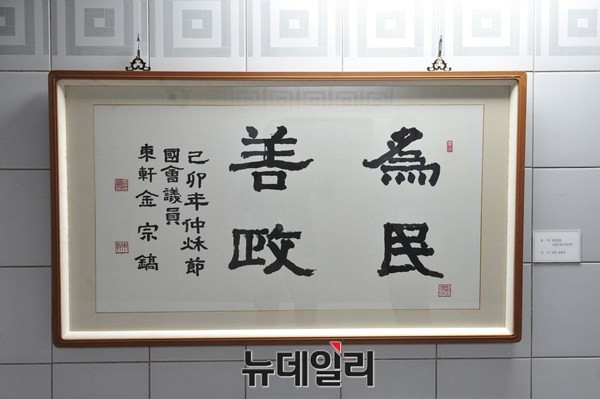 為民
善政
己卯年仲秌節
國會議員
東軒金宗鎬
뉴데일리